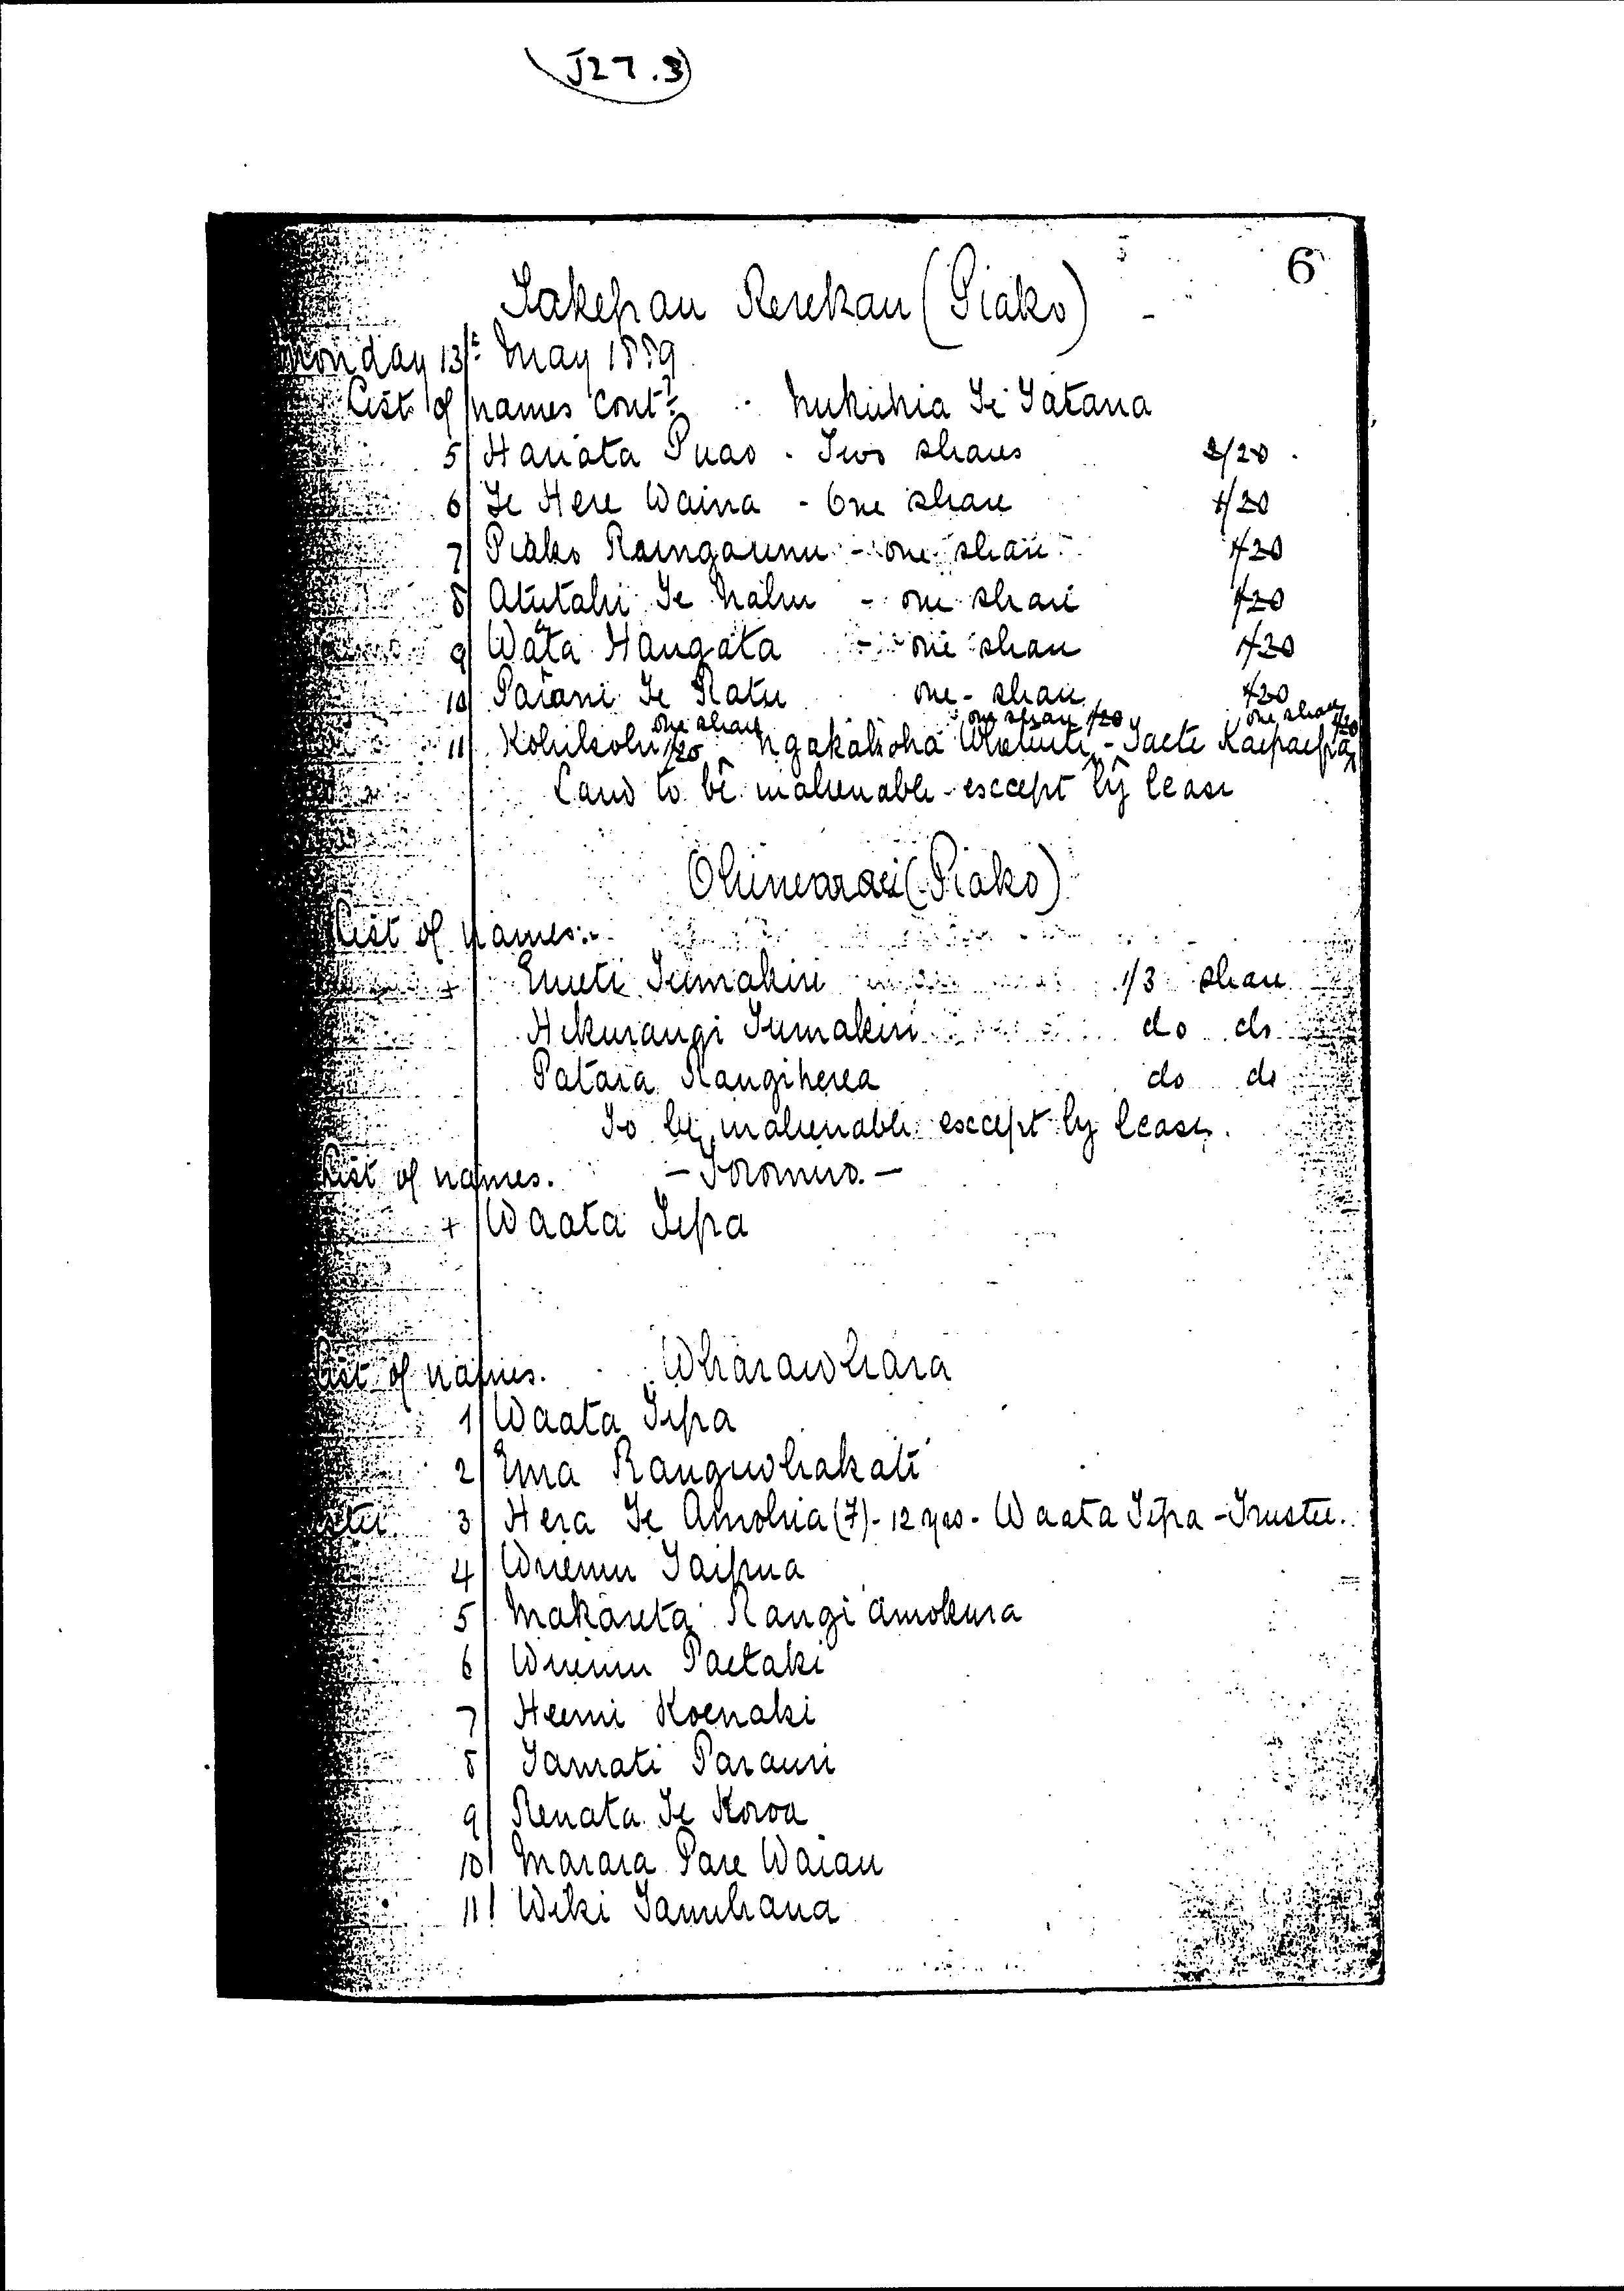 J27.3
6
Takepau Rerekau (Piako) -
Monday 13th May 1889
List of names cont? Nukuhia Te Tatana
5 Hariata Puao - Two shares 2/20
6 Te Here Waina - One share 1/20
7 Piako Raingaunu - one share 1/20
8 Atutahi Te Nahu - one share 1/20
9 Wata Hangata - one share 1/20
10 Paiani Te Ratu one share 1/20
one share one share 1/20 one share 1/20
11 Kohikohi 1/20 Ngakakoha - Taete Kaepaepa
Land to be inalienable - except by lease
(Piako)
List of names:-
+ Erueti Tumakiri 1/3 share
Hikurangi Tumakiri do do
Pataia Rangiherea do do
To be inalienable except by lease.
List of names. - Toromiro. -
+ Waata Tipa
List of names. Wharawhara
1 Waata Tipa
2 Ema Rangiwhakati
3 Hera Te Amohia (7) - 12 yrs - Waata Tipa - Trustee.
4 Wiremu Taipua
5 Makareta Rangi amokura
6 Wiremu Paetaki
7 Heemi Koenaki
8 Tamati Parauri
9 Renata Te Koroa
10 Marara Pare Waiau
11 Wiki Tamihana